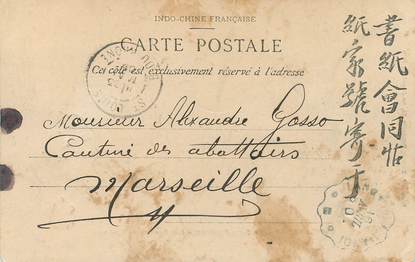 INDO-CHINE FRANÇAISE
CARTE POSTALE
Ce côté est exclusivement réservé à l'adresse
Monsieur Alexandre Gosso
Cantine des abattoirs
Marseille
書紙會同帖
紙家號寄丁